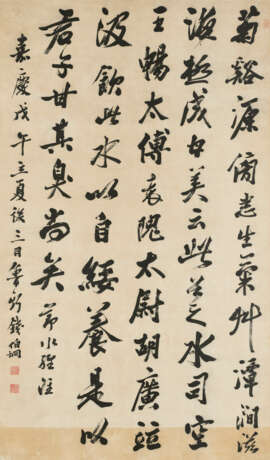 菊谿源傍悉生菊艸潭澗滋
液極成甘美云此谷之水司空
王暢太傅袁隗太尉胡廣並
汲飲此水以自綏養是以
君子甘其臭尚矣 節水經注
嘉慶戊午立夏後三日魯斯錢伯坰